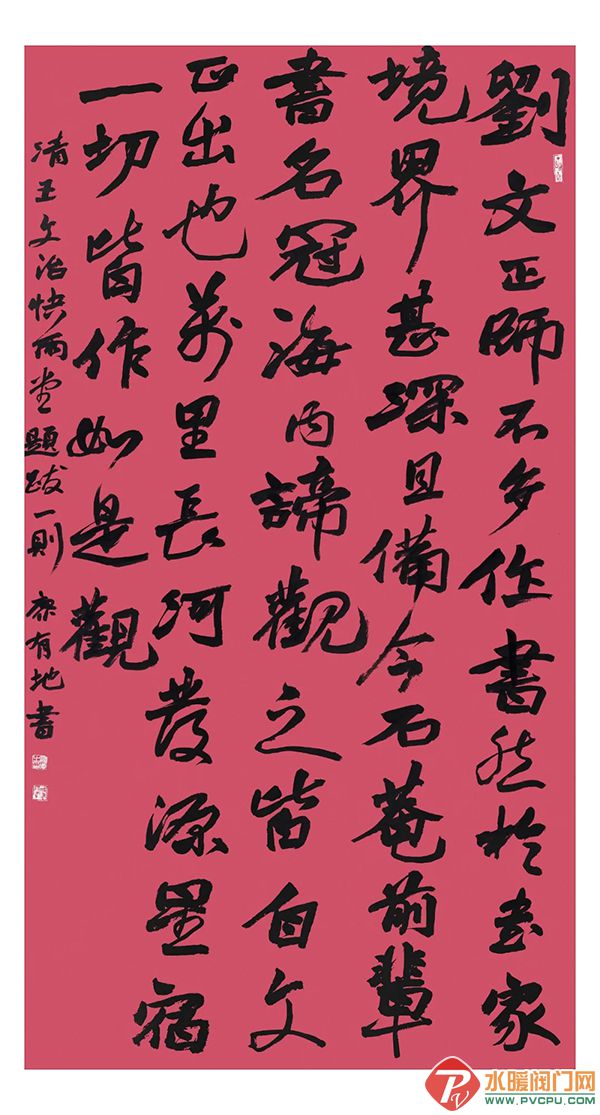 劉文正師不多作書然於書家
境界甚深且備今石菴前輩
書名冠海内諦觀之皆自文
正出也萬里長河發源星宿
一切皆作如是觀
清王文治快雨堂題跋一則 康有地書
水暖阀门网
WWW.PVCPU.COM